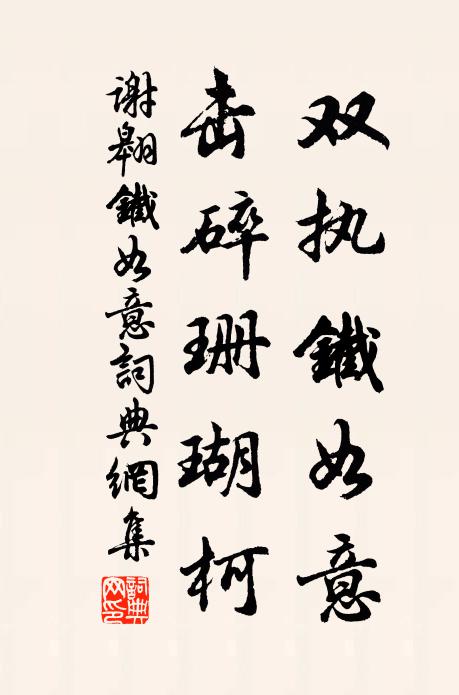 双执鐵如意
击碎珊瑚柯
謝翱鐵如意詞典網集
詞典网印